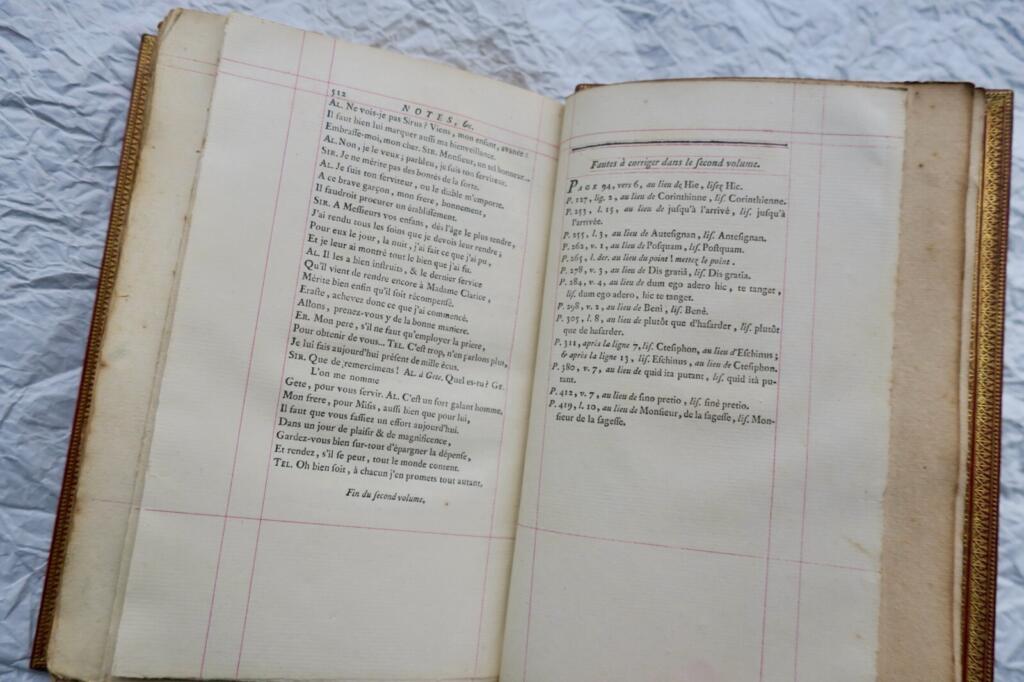 512
NOTES, &c.
AL. Ne vois-je pas Sirus? Viens, mon enfant, avance:
Il faut bien lui marquer aussi ma bienveillance.
Embrasse-moi, mon cher. SIR. Monsieur, un tel honneur...
AL. Non, je le veux; parbleu, je suis ton serviteur.
SIR. Je ne mérite pas des bontés de la sorte.
AL. Je suis ton serviteur, ou le diable m'emporte.
A ce brave garçon, mon frere, bonnement,
Il faudroit procurer un établissement.
SIR. A Messieurs vos enfans, dès l'âge le plus tendre,
J'ai rendu tous les soins que je devois leur rendre;
Pour eux le jour, la nuit, j'ai fait ce que j'ai pu,
Et je leur ai montré tout le bien que j'ai su.
AL. Il les a bien instruits, & le dernier service
Qu'il vient de rendre encore à Madame Clarice,
Mérite bien enfin qu'il soit récompensé.
Eraste, achevez donc ce que j'ai commencé.
Allons, prenez-vous y de la bonne maniere.
ER. Mon pere, s'il ne faut qu'employer la priere,
Pour obtenir de vous... TEL. C'est trop, n'en parlons plus,
Je lui fais aujourd'hui présent de mille écus.
SIR. Que de remercimens! AL. à Gete. Quel es-tu? GE.
L'on me nomme
Gete, pour vous servir. AL. C'est un fort galant homme.
Mon frere, pour Misis, aussi bien que pour lui,
Il faut que vous fassiez un effort aujourd'hui.
Dans un jour de plaisir & de magnificence,
Gardez-vous bien sur-tout d'épargner la dépense,
Et rendez, s'il se peut, tout le monde content.
TEL. Oh bien soit, à chacun j'en promets tout autant.
Fin du second volume.
Fautes à corriger dans le second volume.
PAGE 94, vers 6, au lieu de Hie, lisez Hic.
P. 127, lig. 2, au lieu de Corinthinne, lis. Corinthienne.
P. 253, l. 15, au lieu de jusqu'à l'arrivé, lis. jusqu'à
l'arrivée.
P. 255, l. 3, au lieu de Autesignan, lis. Antesignan.
P. 262, v. 1, au lieu de Posquam, lis. Postquam.
P. 265, l. der. au lieu du point! mettez le point.
P. 278, v. 3, au lieu de Dis gratiâ, lis. Dis gratia.
P. 284, v. 4, au lieu de dum ego adero hic, te tanget,
lis. dum ego adero, hic te tanget.
P. 298, v. 2, au lieu de Beni, lis. Benè.
P. 305, l. 8, au lieu de plutôt que d'hasarder, lis. plutôt
que de hasarder.
P. 311, après la ligne 7, lis. Ctesiphon, au lieu d'Eschinus;
& après la ligne 13, lis. Eschinus, au lieu de Ctesiphon.
P. 380, v. 7, au lieu de quid ita putant, lis. quid ità pu-
tant.
P. 412, v. 7, au lieu de sino pretio, lis. sinè pretio.
P. 419, l. 10, au lieu de Monsieur, de la sagesse, lis. Mon-
sieur de la sagesse.